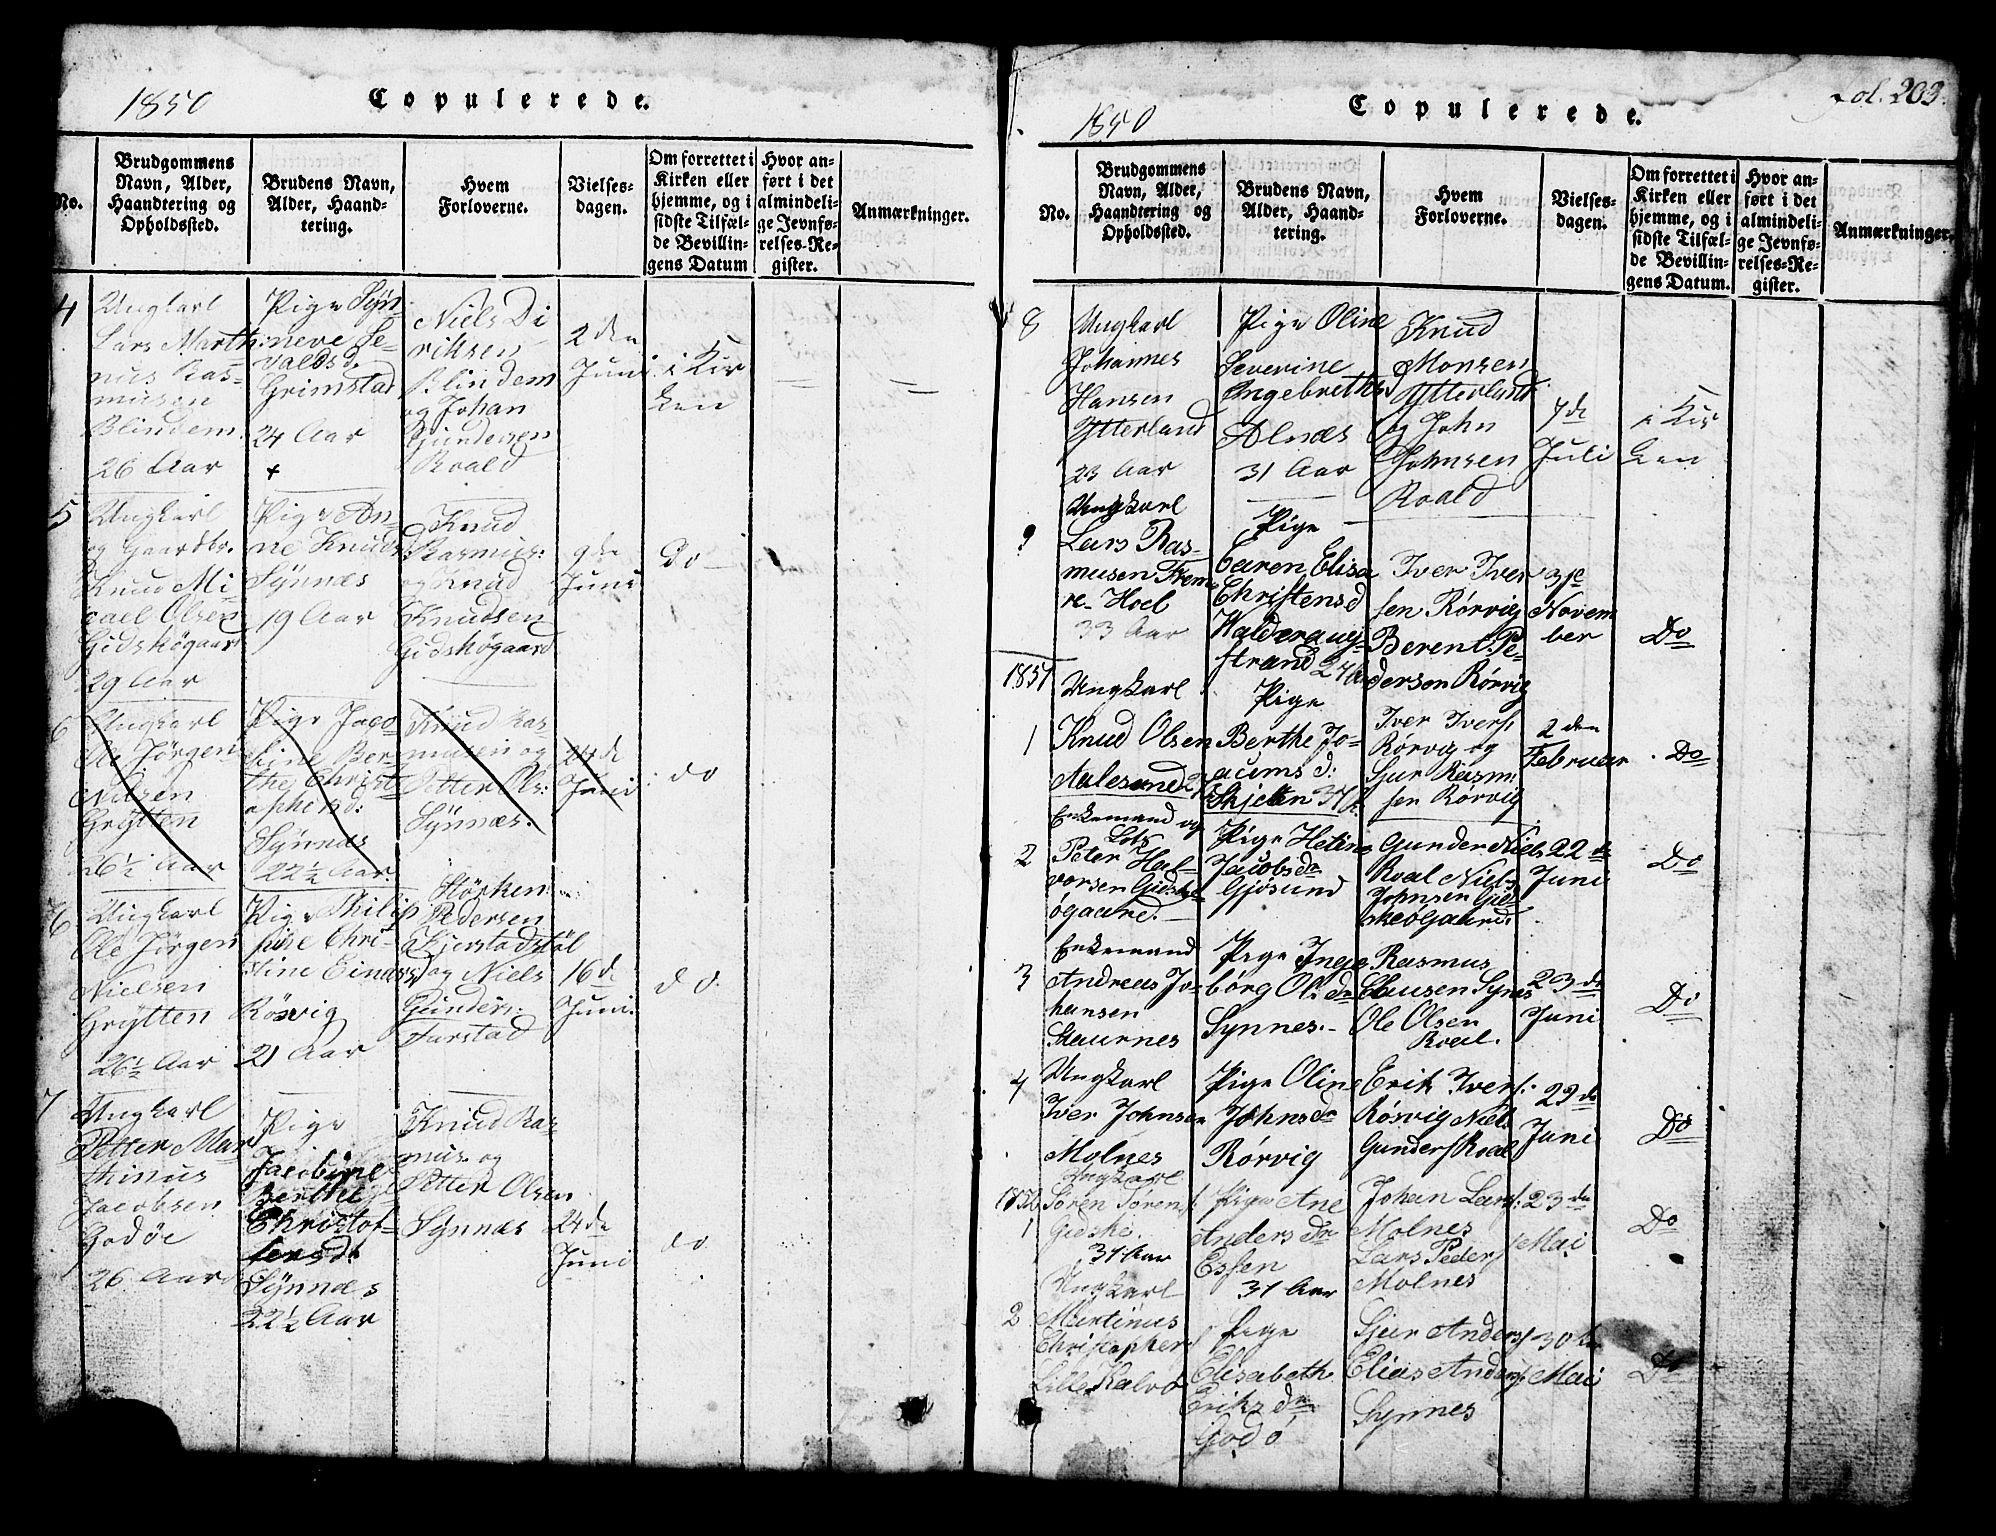 1850
Copulerede.
No.
Brudgommens
Navn, Alder,
Haandtering og
Opholdssted.
Brudens Navn,
Alder, Haand-
tering.
Hvem
Forloverne.
Vielses-
dagen.
Om forrettet i
Kirken eller
hjemme, og i
sidste Tilfæl-
de Bevillin-
gens Datum
Hvor an-
ført i det
almindeli-
ge Jevnfø-
relses-Re-
gister.
Anmærkninger.
4
Ungkarl
Lars Marth:
nus Ras-
musen
Blindem.
26 Aar
Pige Syn-
neve Se-
valdsd.
Grimstad
24 Aar
+
Niels Di
riksen
Blindem
og Johan
Gundersen
Roald
2 den
Juni
i Kir
ken
5
Ungkarl
og Gaardbr.
Knud Mi-
cael Olsen
Gidskøgaard
29 Aar
Pige An-
ne Knudsd
Synnæs
19 Aar
Knud
Rasmus:
og Knud
Knudsen
Gidskøgaard
9de
Juni
Do
6
Ungkarl
Ole Jørgen
Nilsen
Grytten
26½ Aar
Pige Jaco
bine Ber-
the Christ
ophersd:
Synnæs
22½ Aar
Knud Ras
musen og
Petter Ols:
Synnæs.
24de
Juni
do
6
Ungkarl
Ole Jörgen
Nielsen
Grytten
26½ Aar
Pige Philip
pine Chri-
stine Einarsd
Rösvig
21 Aar
Störken
Pedersen
Kjerstadstöl
og Niels
Gunders:
Farstad
16de
Juni
do.
7
Ungkarl
Petter Mar
thinus
Jacobsen
Godöe
26 Aar
Pige
Jacobine
Berthe
Christof-
fersd:
Synnæs
22½ Aar
Knud Ras
mus. og
Petter Olsen
Synnæs
24de
Juni
do
fol. 203.
1850
Copulerede.
No.
Brudgommens
Navn, Alder,
Haandtering og
Opholdssted.
Brudens Navn,
Alder, Haand-
tering.
Hvem
Forloverne.
Vielses-
dagen.
Om forrettet i
Kirken eller
hjemme, og i
sidste Tilfæl-
de Bevillin-
gens Datum.
Hvor an-
ført i det
almindeli-
ge Jevnfø-
relses-Re-
gister.
Anmærkninger.
8
Ungkarl
Johannes
Hansen
Ytterland
23 Aar
Pige Oline
Severine
Ingebrethsd
Alnæs
31 Aar
Knud
Monsen
Ytterland
og John
Johnsen
Roald
7de
Juli
i Kir
ken
9
Ungkarl
Lars Ras-
musen Frem
re- Hoel
33 Aar
Pige
Caren Elisa
Christensd
Halderaug-
strand 24
Iver Iver
sen Rörvig
Berent Pe-
dersen Rörvig
3je
Novem
ber
Do
1851
1
Ungkarl
Knud Olsen
Aalesund
Pige
Berthe Jo-
acims d:
Skjelten 37
Iver Ivers.
Rørvig og
Sjur Rasm
sen Rørvig
2 den
Februar
Do
2
Enkemand og
Lots
Peter Hal-
vorsen Gidsk
øgaard.
Pige Heline
Jacobs da
Gjøsund
Gunder Niels
Roal Niels
Johnsen Gid
skeøgaard
22 de
Juni
Do
3
Enkemand
Andreas Jo-
hansen
Staurnes
Pige Inge
børg Ols da
Synnes.
Rasmus
Clausen Synes
Ole Olsen
Roal.
23 de
Juni
Do
4
Ungkarl
Iver Johnsen
Molnes
Pige Oline
Johnsda
Rørvig
Erik Ivers:
Røsvig Niels
Gunders Roal
29 de
Juni
Do
1852
1
Ungkarl
Søren Søren.
Gidske.
31 Aar
Pige Ane
Anders da
Essen
31 Aar
Johan Lars:
Molnes
Lars Peders
Molnes
23 de
Mai
Do
2
Ungkarl
Martinus
Christopher
Lille Kalvø
Pige
Elisabeth
Eriks da
Godø
Sjur Anders
Elias Anders
Synnes
30 te
Mai
Do